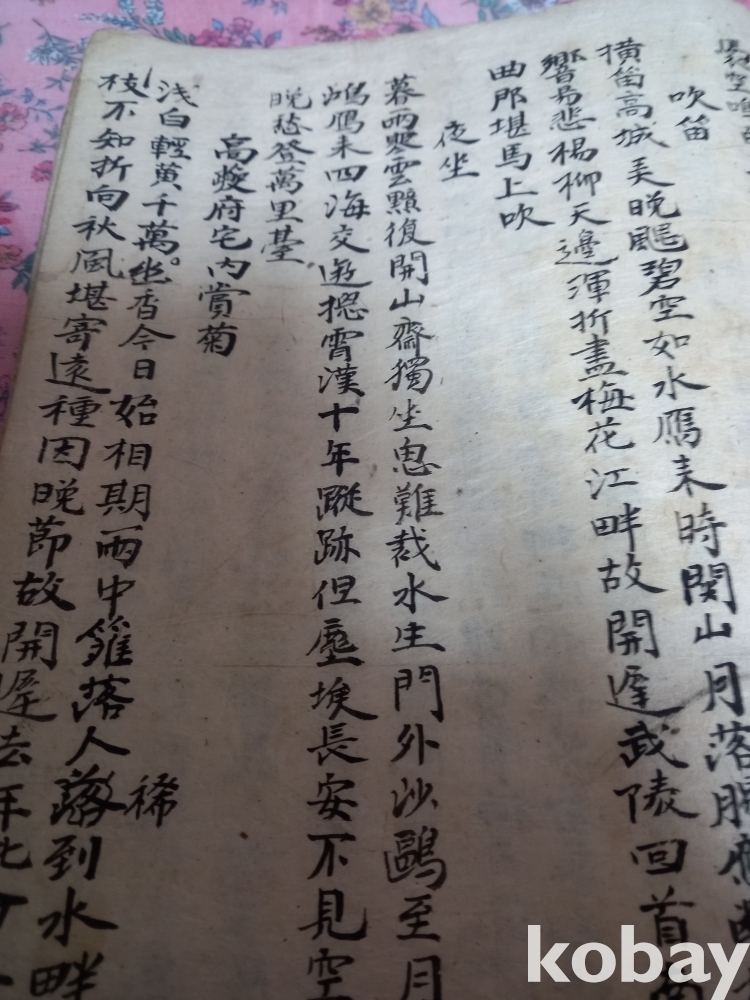 吹笛
橫笛高城美晚颸碧空如水鴈来時関山月落
響易悲楊柳天邊渾折盡梅花江畔故開遲武陵回首
曲那堪馬上吹
夜坐
暮雨寒雲黯復開山齋獨坐思難裁水生門外沙鷗至月
鴻鴈来四海交遊摠霄漢十年蹤跡但塵埃長安不見空
晚愁登萬里臺
高府宅內賞菊
浅白輕黃千萬坐香今日始相期雨中籬落人稀到水畔
枝不知折向秋風堪寄遠種因晚節故開遲去年
kobay